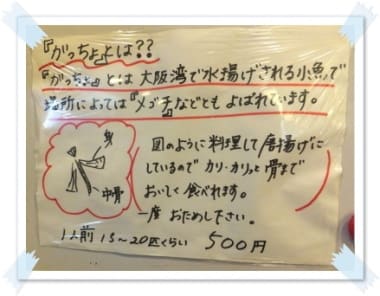 『がっちょ』とは??
『がっちょ』とは 大阪湾で水揚げされる小魚で
場所によっては『メゴチ』などとも よばれています。
身
中骨
図のように料理して唐揚げに
しているので カリ・カリっと骨まで
おいしく食べれます。
一度 おためし下さい。
1人前 15〜20匹くらい 500円